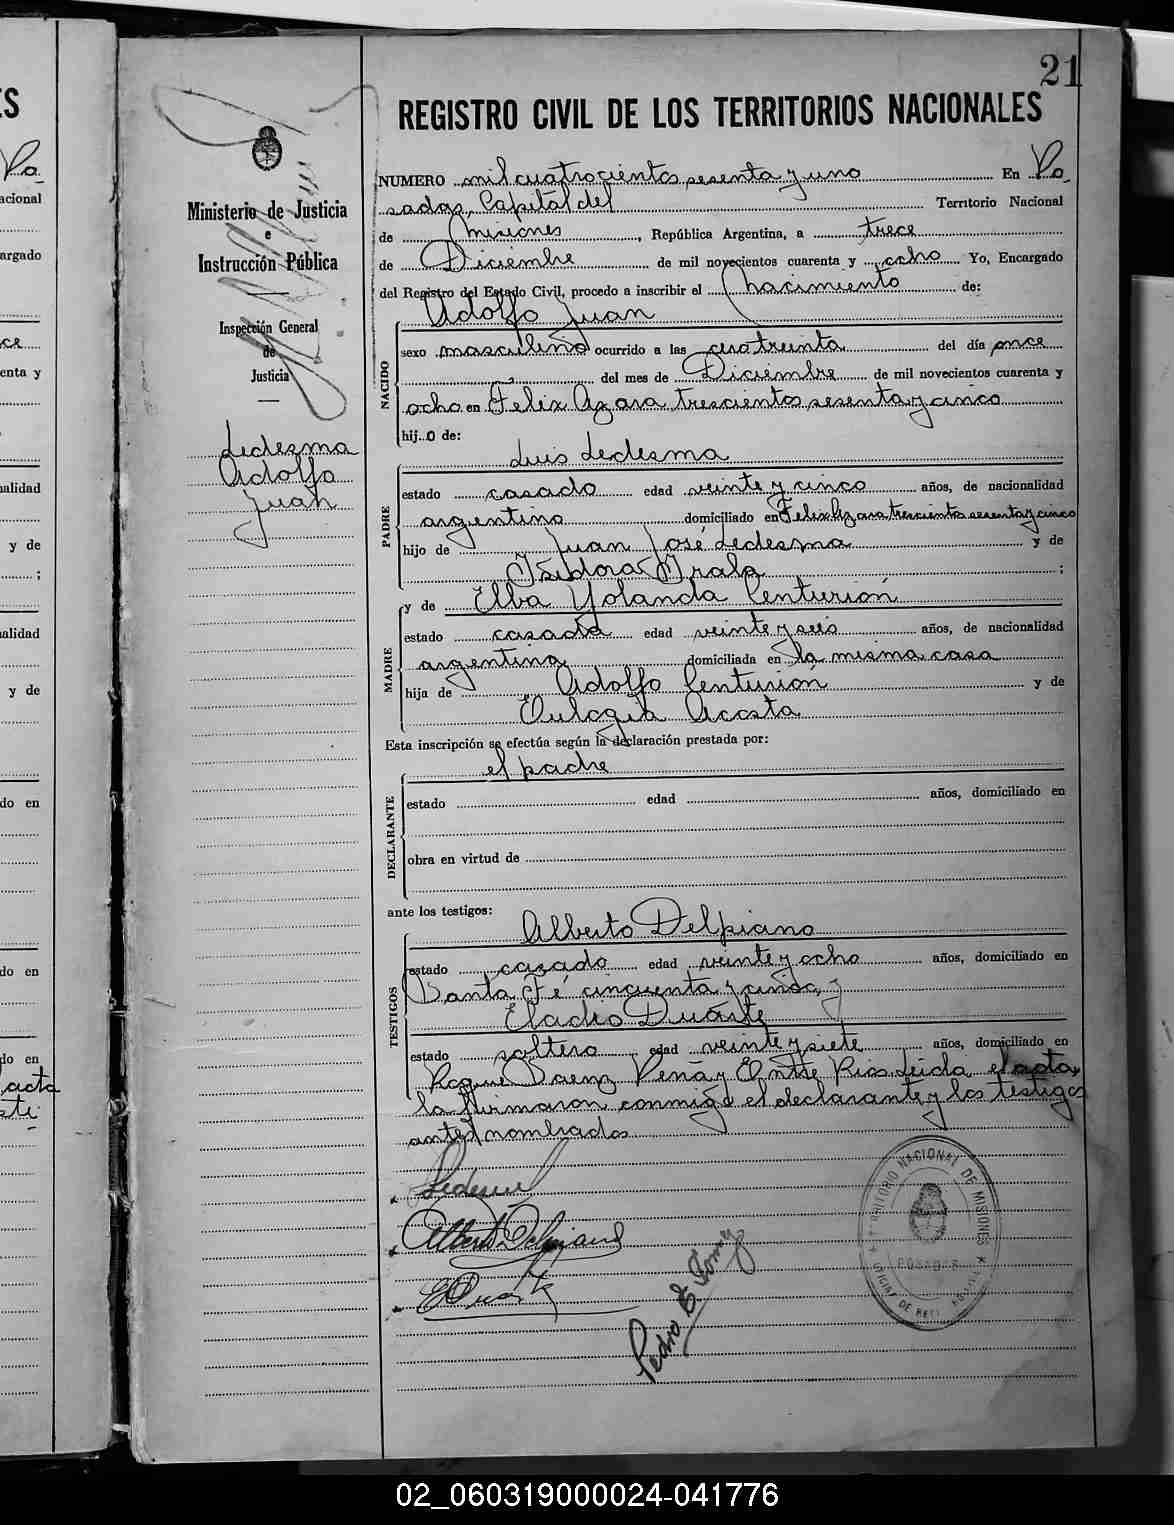 21
REGISTRO CIVIL DE LOS TERRITORIOS NACIONALES
Ministerio de Justicia
e
Instrucción Pública
Inspección General
de
Justicia
Ledesma
Adolfo
Juan
NUMERO mil cuatrocientos sesenta y uno En Po
sadas, Capital del Territorio Nacional
de Misiones, República Argentina, a trece
de Diciembre de mil novecientos cuarenta y ocho Yo, Encargado
del Registro del Estado Civil, procedo a inscribir el nacimiento de:
Adolfo Juan
NACIDO
sexo masculino ocurrido a las cero treinta del día once
del mes de Diciembre de mil novecientos cuarenta y
ocho en Felix Azara trescientos sesenta y cinco
hijo de:
Luis Ledesma
PADRE
estado casado edad veinte y cinco años, de nacionalidad
argentino domiciliado en Felix Azara trescientos sesenta y cinco
hijo de Juan José Ledesma y de
Isidora Irala ;
y de Elba Yolanda Centurión
MADRE
estado casada edad veinte y seis años, de nacionalidad
argentina domiciliada en la misma casa
hija de Adolfo Centurión y de
Eulogia Acosta
Esta inscripción se efectúa según la declaración prestada por:
el padre
DECLARANTE
estado edad años, domiciliado en
obra en virtud de
ante los testigos:
Alberto Delpiano
TESTIGOS
estado casado edad veinte y ocho años, domiciliado en
Santa Fé cincuenta y
Eladio Duarte
estado soltero edad veinte y siete años, domiciliado en
Roque Saenz Peña y Entre Rios. Leida el acta,
la firmaron conmigo el declarante y los testigos
antes nombrados
Ledesma
Alberto Delpiano
E Duarte
Pedro E. Gomez
TERRITORIO NACIONAL DE MISIONES
POSADAS
02_060319000024-041776